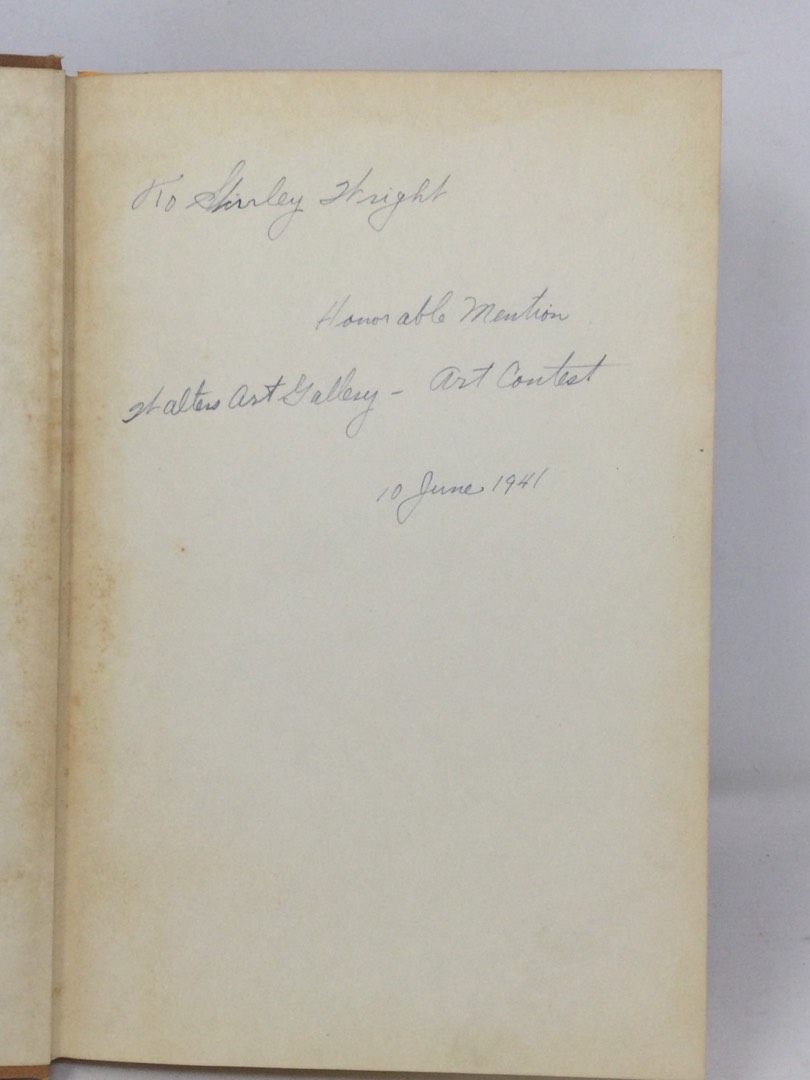 To Shirley Wright
Honorable Mention
Walters Art Gallery - Art Contest
10 June 1941